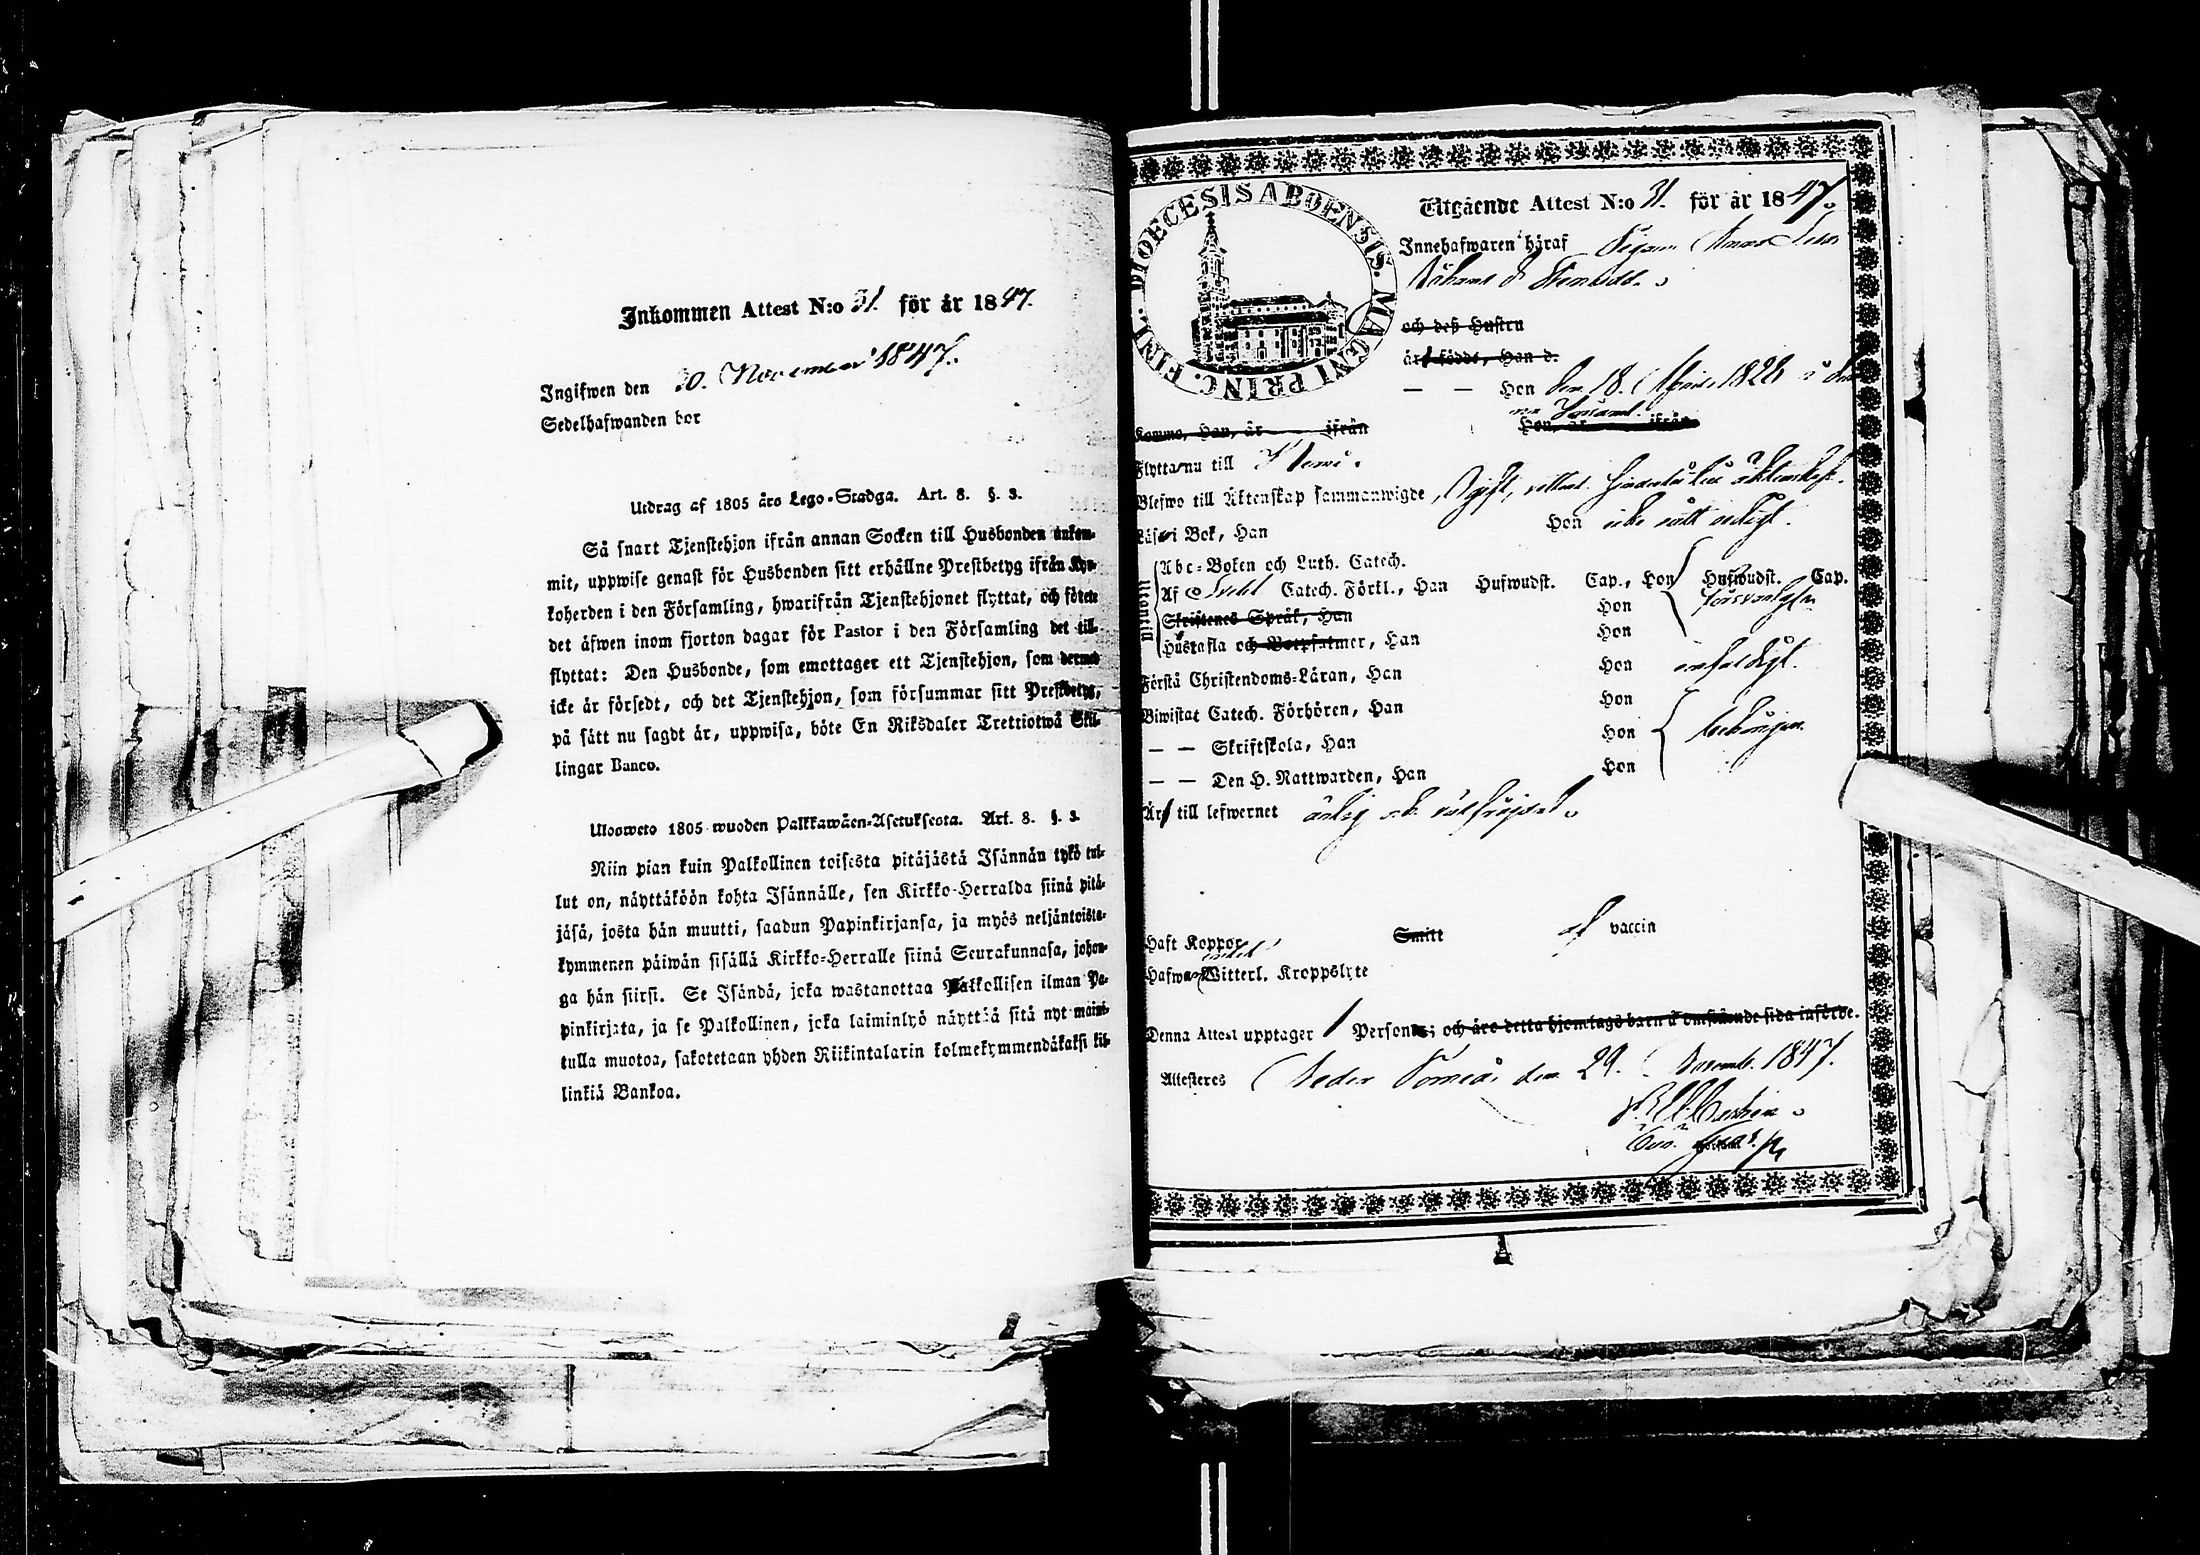 Inkommen Attest N:o 31. för år 1847.
Ingifwen den 30. November 1847.
Sedelhafwanden bor
Utdrag af 1805 års Lego-Stadga. Art. 8. §. 3.
Så snart Tjenstehjon ifrån annan Socken till Husbonden ankom-
mit, uppwise genast för Husbonden sitt erhållne Prestbetyg ifrån Kyr-
koherden i den Församling, hwarifrån Tjenstehjonet flyttat, och förete
det äfwen inom fjorton dagar för Pastor i den Församling det till-
flyttat: Den Husbonde, som emottager ett Tjenstehjon, som dermed
icke är försedt, och det Tjenstehjon, som försummar sitt Prestbetyg,
på sätt nu sagdt är, uppwisa, böte En Riksdaler Trettiotwå Skil-
lingar Banco.
Ulosweto 1805 wuoden Palkkawäen-Asetuksesta. Art. 8. §. 3.
Niin pian kuin Palkollinen toisesta pitäjästä Isännän tykö tul-
lut on, näyttäköön kohta Isännälle, sen Kirkko-Herralda siinä pitä-
jäsä, josta hän muutti, saadun Papinkirjansa, ja myös neljäntoista-
kymmenen päiwän sisällä Kirkko-Herralle siinä Seurakunnasa, johon-
ga hän siirsi. Se Isändä, joka wastanottaa Palkollisen ilman Pa-
pinkirjata, ja se Palkollinen, joka laiminlyö näyttää sitä nyt maini-
tulla muotoa, sakotetaan yhden Riikintalarin kolmekymmendäkaksi kil-
linkiä Bankoa.
DIOECESIS ABOENSIS. MAGNI PRINC. FINL.
Utgående Attest N:o 31. för år 1847.
Innehafwaren häraf Pigan Anna
och deß Hustru
är födde, Han d.
— — Hon den 18. April 1826 i den
na Församl.
Komme, Han, år ifrån Hon, år ifrån
Flytta nu till Kemi.
Blefwo till Äktenskap sammanwigde, Ogift, hinderslös äktenskap.
Läsa i Bok, Han Hon icke rätt redigt.
Utantill
Abc-Boken och Luth. Catech.
Af Svebil. Catech. Förkl., Han Hufwudst. Cap., Hon Hufwudst. Cap.
Skriftenes Språk, Han Hon försvarligen
Hustafla och Botpsalmer, Han Hon
Förstå Christendoms-Läran, Han Hon enfaldigt.
Biwistat Catech. Förhören, Han Hon
— — Skriftskola, Han Hon behörigen.
— — Den H. Nattwarden, Han Hon
Är till lefwernet ärlig och välfrejdad.
Haft Koppor Smitt af vaccin
Hafwa intet Witterl. Kroppslyte
Denna Attest upptager 1 Person; och äro detta hjonlags barn å omstående sida införde.
Attesteres Neder Torneå, den 29. Novemb. 1847.